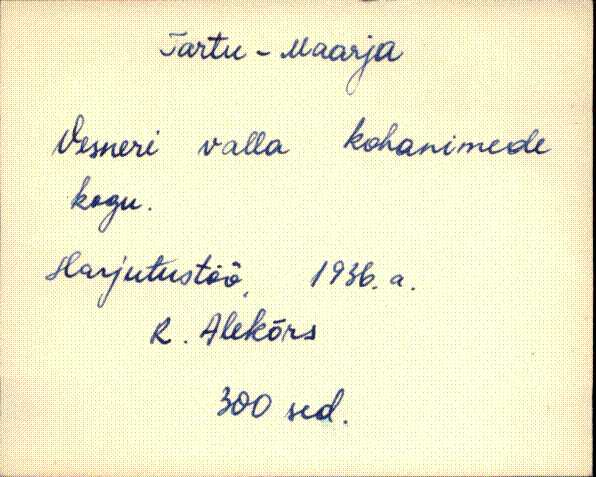 Tartu - Maarja
Vesneri valla kohanimede
kogu.
Harjutustöö, 1936. a.
R. Alekõrs
300 sed.